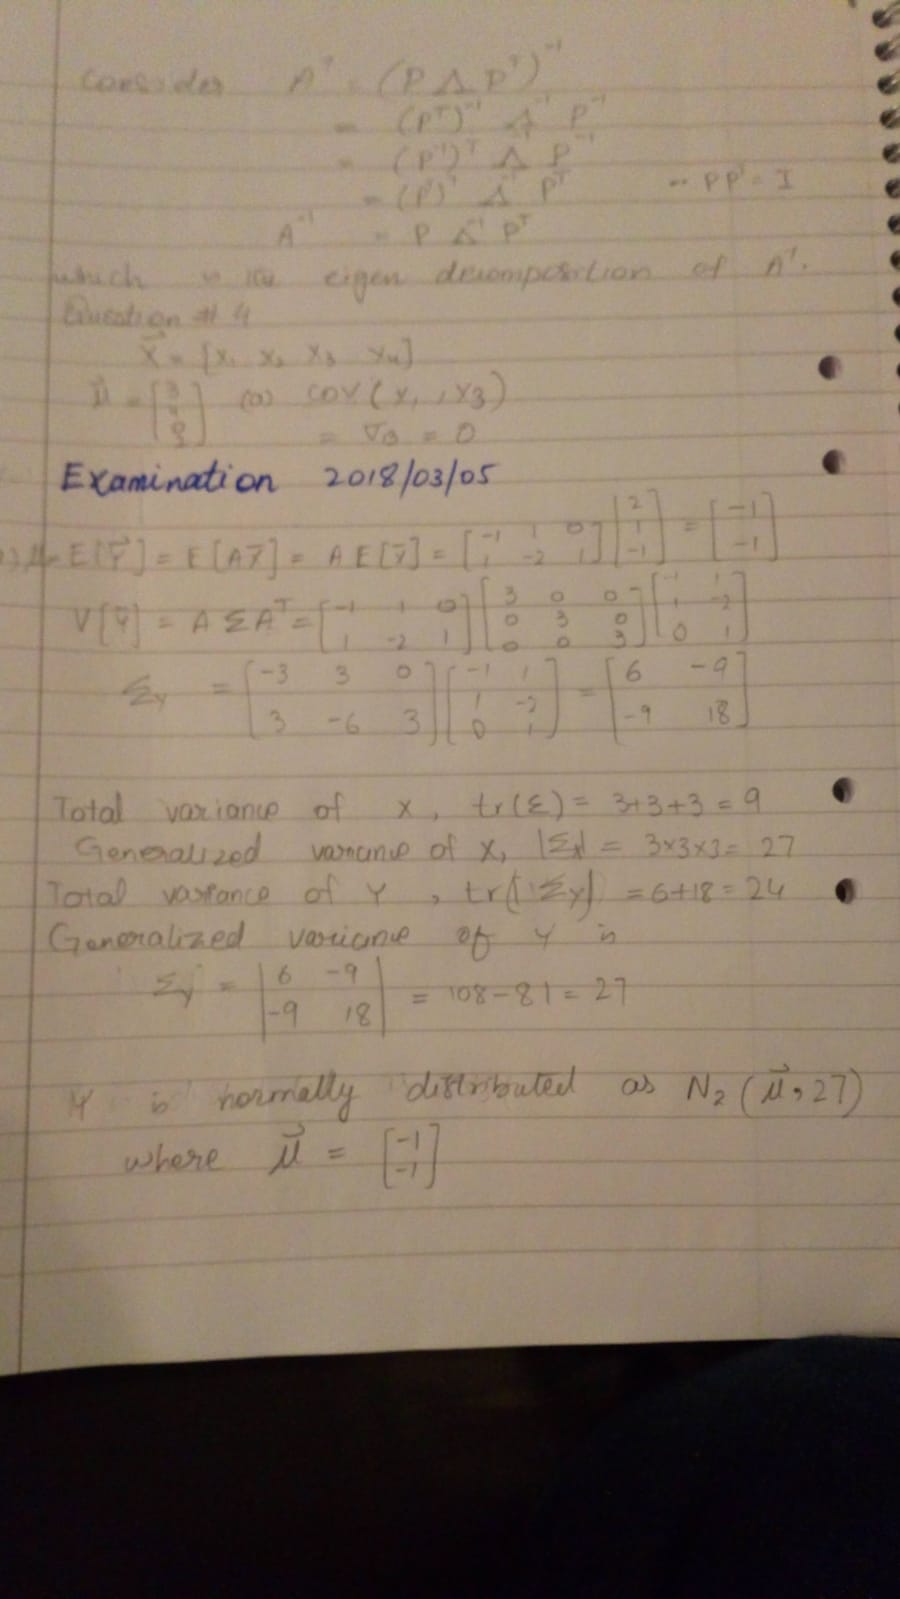 Consider A⁻¹ = (P Λ Pᵀ)⁻¹
= (Pᵀ)⁻¹ Λ⁻¹ P⁻¹
= (P⁻¹)ᵀ Λ⁻¹ P⁻¹
= Λ⁻¹ Pᵀ ∵ PPᵀ = I
A⁻¹ = P Λ⁻¹ Pᵀ
which is the eigen decomposition of A⁻¹.
Question # 4
X⃗ = [X₁ X₂ X₃ X₄]
(a) COV(X₁, X₃)
= σ₁₃ = 0
Examination 2018/03/05
E[Y⃗] = E[AX⃗] = A E[X⃗] = [-1 1 0; 1 -2 1] [2; 1; -1] = [-1; -1]
V[Y⃗] = A Σ Aᵀ = [-1 1 0; 1 -2 1] [3 0 0; 0 3 0; 0 0 3] [-1 1; 1 -2; 0 1]
Σy = [-3 3 0; 3 -6 3] [-1 1; 1 -2; 0 1] = [6 -9; -9 18]
Total variance of X, tr(Σ) = 3+3+3 = 9
Generalized variance of X, |Σx| = 3x3x3 = 27
Total variance of Y, tr(Σy) = 6+18 = 24
Generalized variance of Y is
Σy = |6 -9; -9 18| = 108-81 = 27
Y is normally distributed as N₂(μ⃗, 27)
where μ⃗ = [-1; -1]